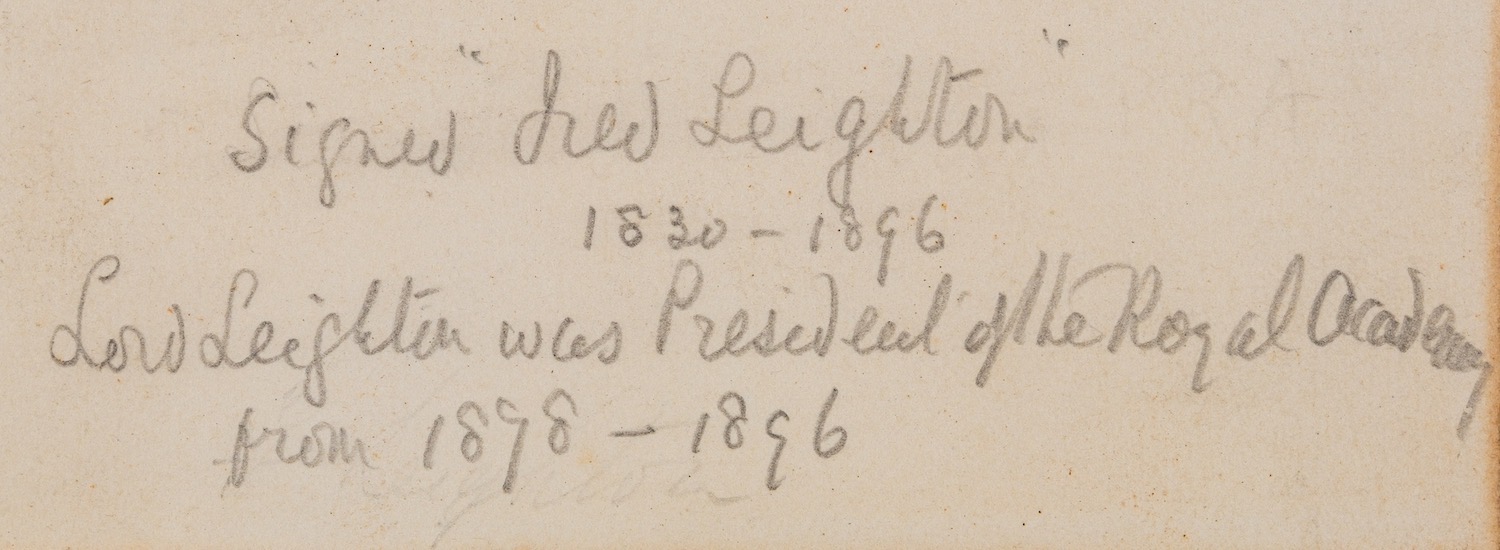 Signed "Fred Leighton"
1830 - 1896
Lord Leighton was President of the Royal Academy
from 1878 - 1896